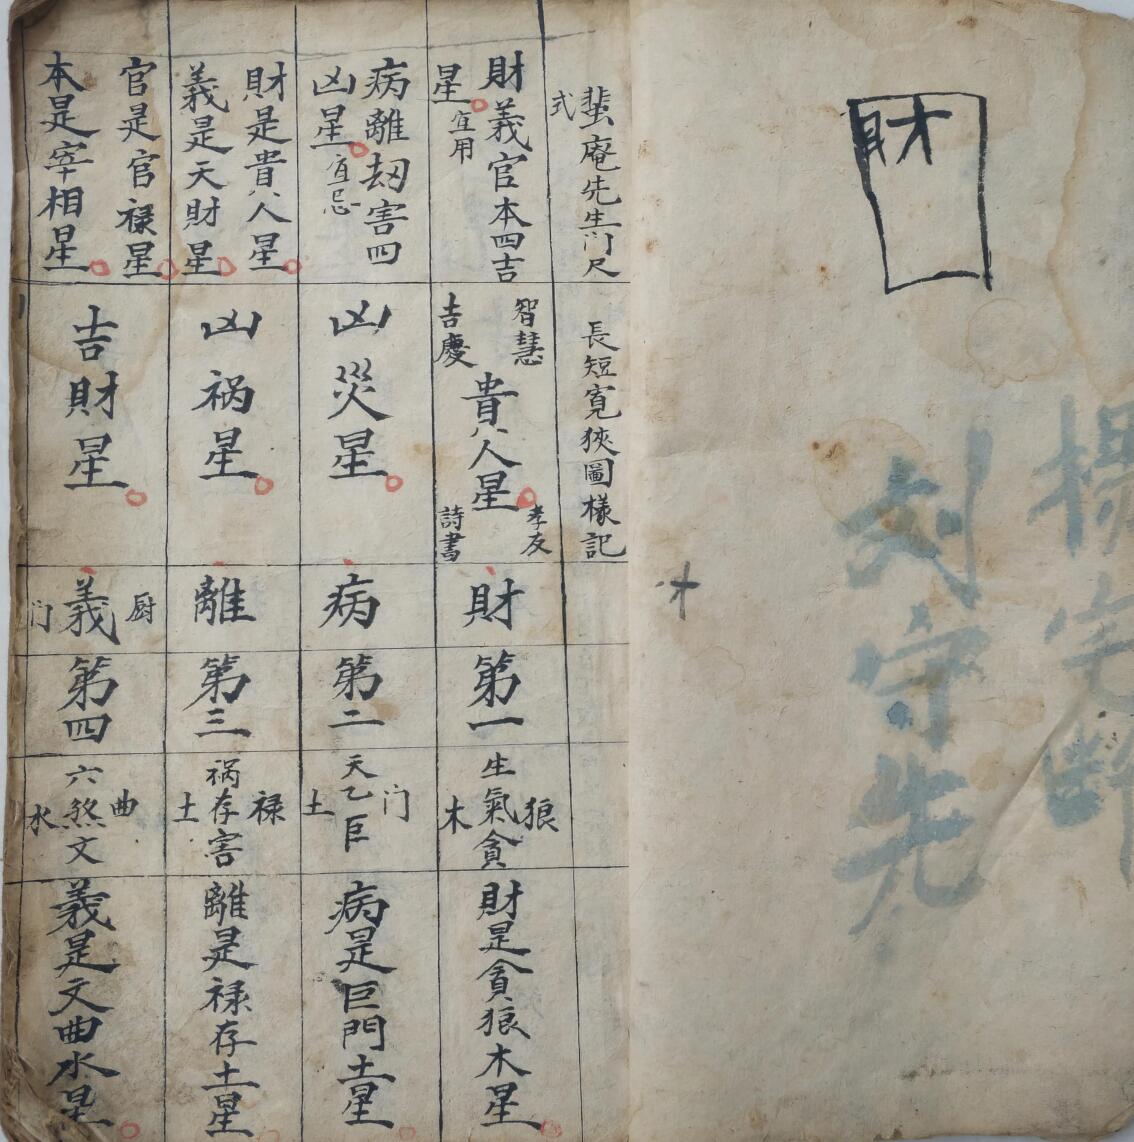 財
才
楊宅
刘守先
蜚庵先生门尺式
長短寬狹圖樣記
財義官本四吉星宜用
病離刼害四凶星宜忌
財是貴人星
義是天財星
官是官禄星
本是宰相星
智慧
吉慶
貴人星
孝友
詩書
凶災星
凶祸星
吉財星
財
病
離
厨
義
门
第一
第二
第三
第四
狼
生氣貪
木
门
天乙巨
土
禄
祸存害
土
曲
六煞文
水
財是貪狼木星
病是巨門土星
離是禄存土星
義是文曲水星